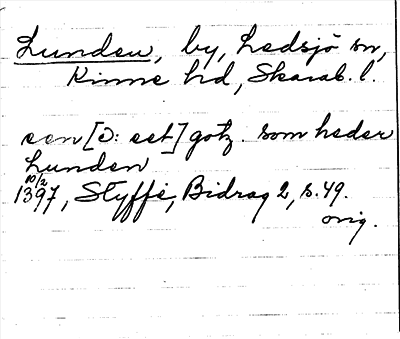 Lunden, by, Ledsjö sn,
Kinne hd, Skarab. l.
een [ɔ: eet] gotz. som heder
Lunden
10/2
1397, Styffe, Bidrag 2, s. 49.
orig.